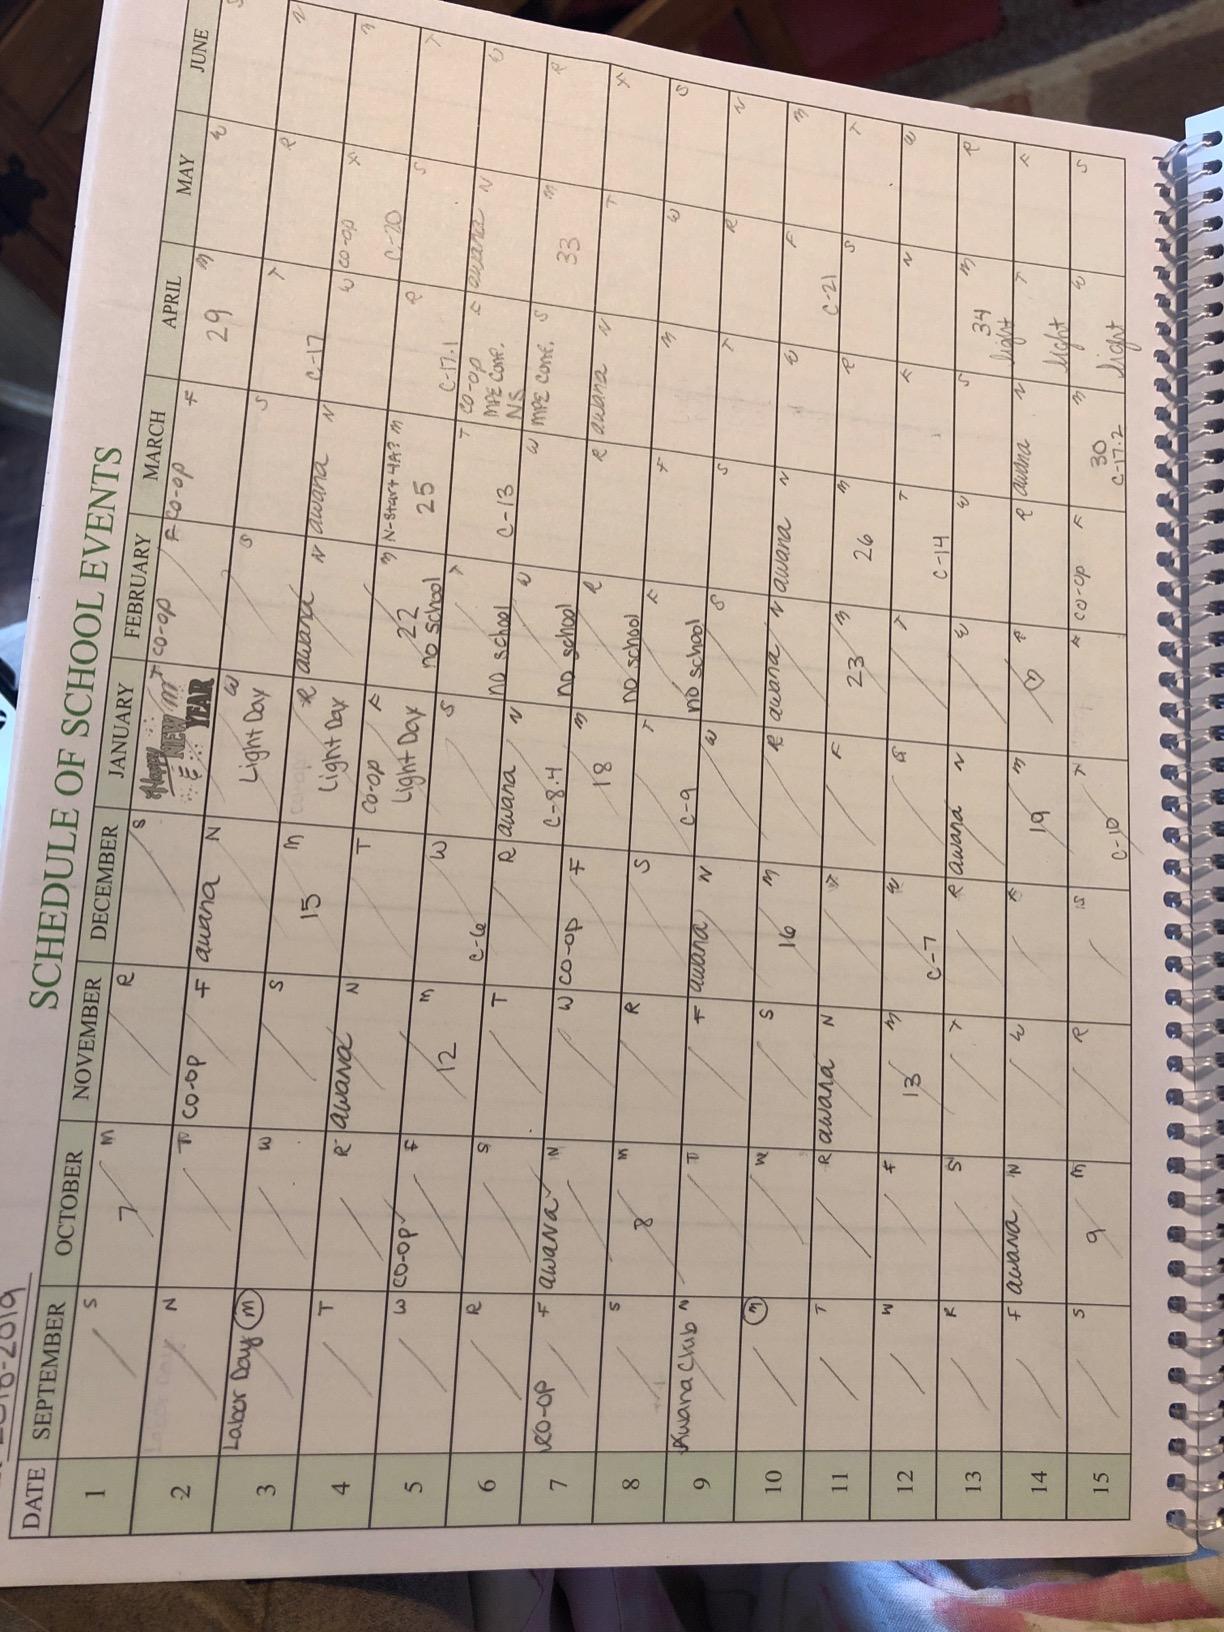 2018-2019
SCHEDULE OF SCHOOL EVENTS
DATE SEPTEMBER OCTOBER NOVEMBER DECEMBER JANUARY FEBRUARY MARCH APRIL MAY JUNE
1 S 7 M R S Happy NEW YEAR T co-op F co-op F 29 M W S
2 N T co-op F awana N Light Day W S S T R N
3 Labor Day M W S 15 M Light Day R awana N awana N C-17 W co-op F M
4 T R awana N T co-op Light Day F 22 no school M N-Start 4A? 25 M C-17.1 R C-20 S T
5 W co-op F 12 M C-6 W S no school T C-13 T co-op MPE Conf. NS F awana N W
6 R S T R awana N C-8.4 no school W W MPE Conf. S 33 M R
7 co-op F awana N W co-op F 18 M no school R R awana N T F
8 S 8 M R S C-9 T no school F F M W S
9 Awana Club N T F awana N W S S T R N
10 M W S 16 M R awana N awana N W F M
11 T R awana N T F 23 M 26 M R C-21 S T
12 W F 13 M C-7 W S T C-14 T F N W
13 R S T R awana N W W S 34 light M R
14 F awana N W F 19 M R R awana N light T F
15 S 9 M R S C-10 T F co-op F 30 C-17.2 M light W S